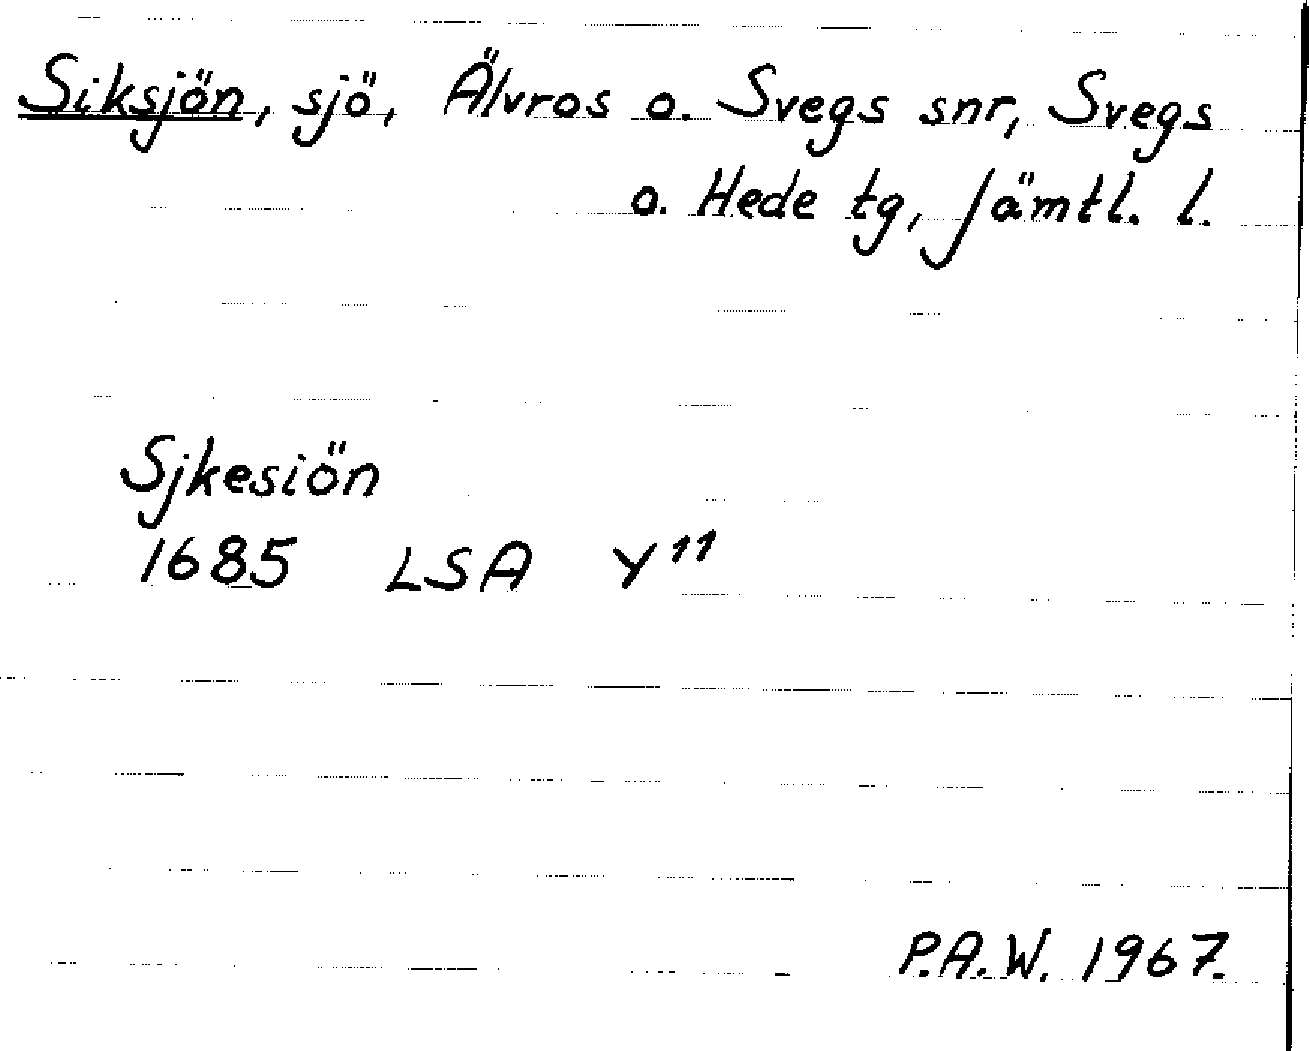 Siksjön, sjö, Älvros o. Svegs snr, Svegs
o. Hede tg, Jämtl. l.
Sjkesiön
1685 LSA Y¹¹
P.A.W. 1967.